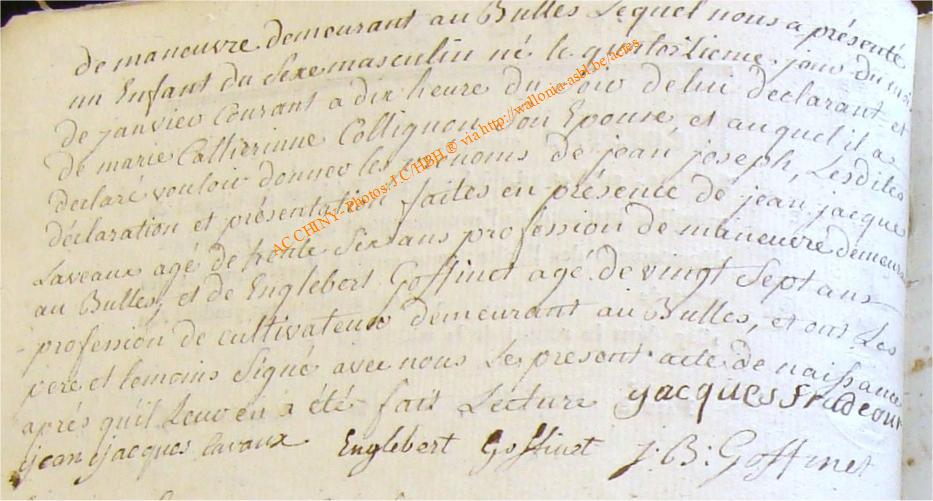 de maneuvre demeurant au Bulles Lequel nous a présenté
un Enfant du Sexe masculin né le quatorzieme jour du mois
de janvier Courant a dix heure du soir de lui declarant et
de marie Catherinne Collignon son Epouse, et auquel il a
declare vouloir donner les prenoms de jean joseph, Lesdites
déclaration et présentation faites en présence de jean jacque
Lavaux agé de trente Six ans profession de maneuvre demeurant
au Bulles, et de Englebert Goffinet agé de vingt Sept ans
profession de cultivateur demeurant au Bulles, et ont Les
pere et temoins Signé avec nous Le present acte de naissance
aprés qu'il Leur en a été fait Lecture jacques
jean jacques Lavaux Englebert Goffinet J: B: Goffinet
AC CHINY - Photos: J C/HBH ® via http://wallonia-asbl.be/actes